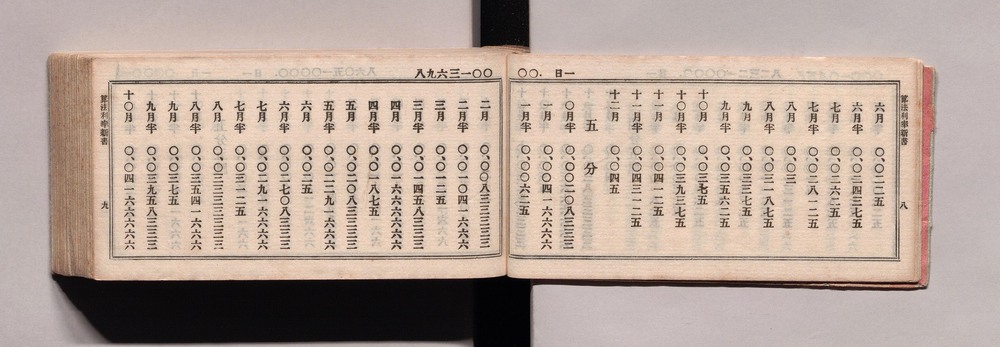 一日 .〇〇
算法利率新書 八
六月 〇、〇二二五
六月半 〇、〇二四三七五
七月 〇、〇二六二五
七月半 〇、〇二八一二五
八月 〇、〇三
八月半 〇、〇三一八七五
九月 〇、〇三三七五
九月半 〇、〇三五六二五
十〇月 〇、〇三七五
十〇月半 〇、〇三九三七五
十一月 〇、〇四一二五
十一月半 〇、〇四三一二五
十二月 〇、〇四五
五分
〇月半 〇、〇〇二〇八三三三
一月 〇、〇〇四一六六六六
一月半 〇、〇〇六二五
〇〇一三六九八
二月 〇、〇〇八三三三三三
二月半 〇、〇一〇四一六六六
三月 〇、〇一二五
三月半 〇、〇一四五八三三三
四月 〇、〇一六六六六六六
四月半 〇、〇一八七五
五月 〇、〇二〇八三三三三
五月半 〇、〇二二九一六六六
六月 〇、〇二五
六月半 〇、〇二七〇八三三三
七月 〇、〇二九一六六六六
七月半 〇、〇三一二五
八月 〇、〇三三三三三三三
八月半 〇、〇三五四一六六六
九月 〇、〇三七五
九月半 〇、〇三九五八三三三
十〇月 〇、〇四一六六六六六
算法利率新書 九